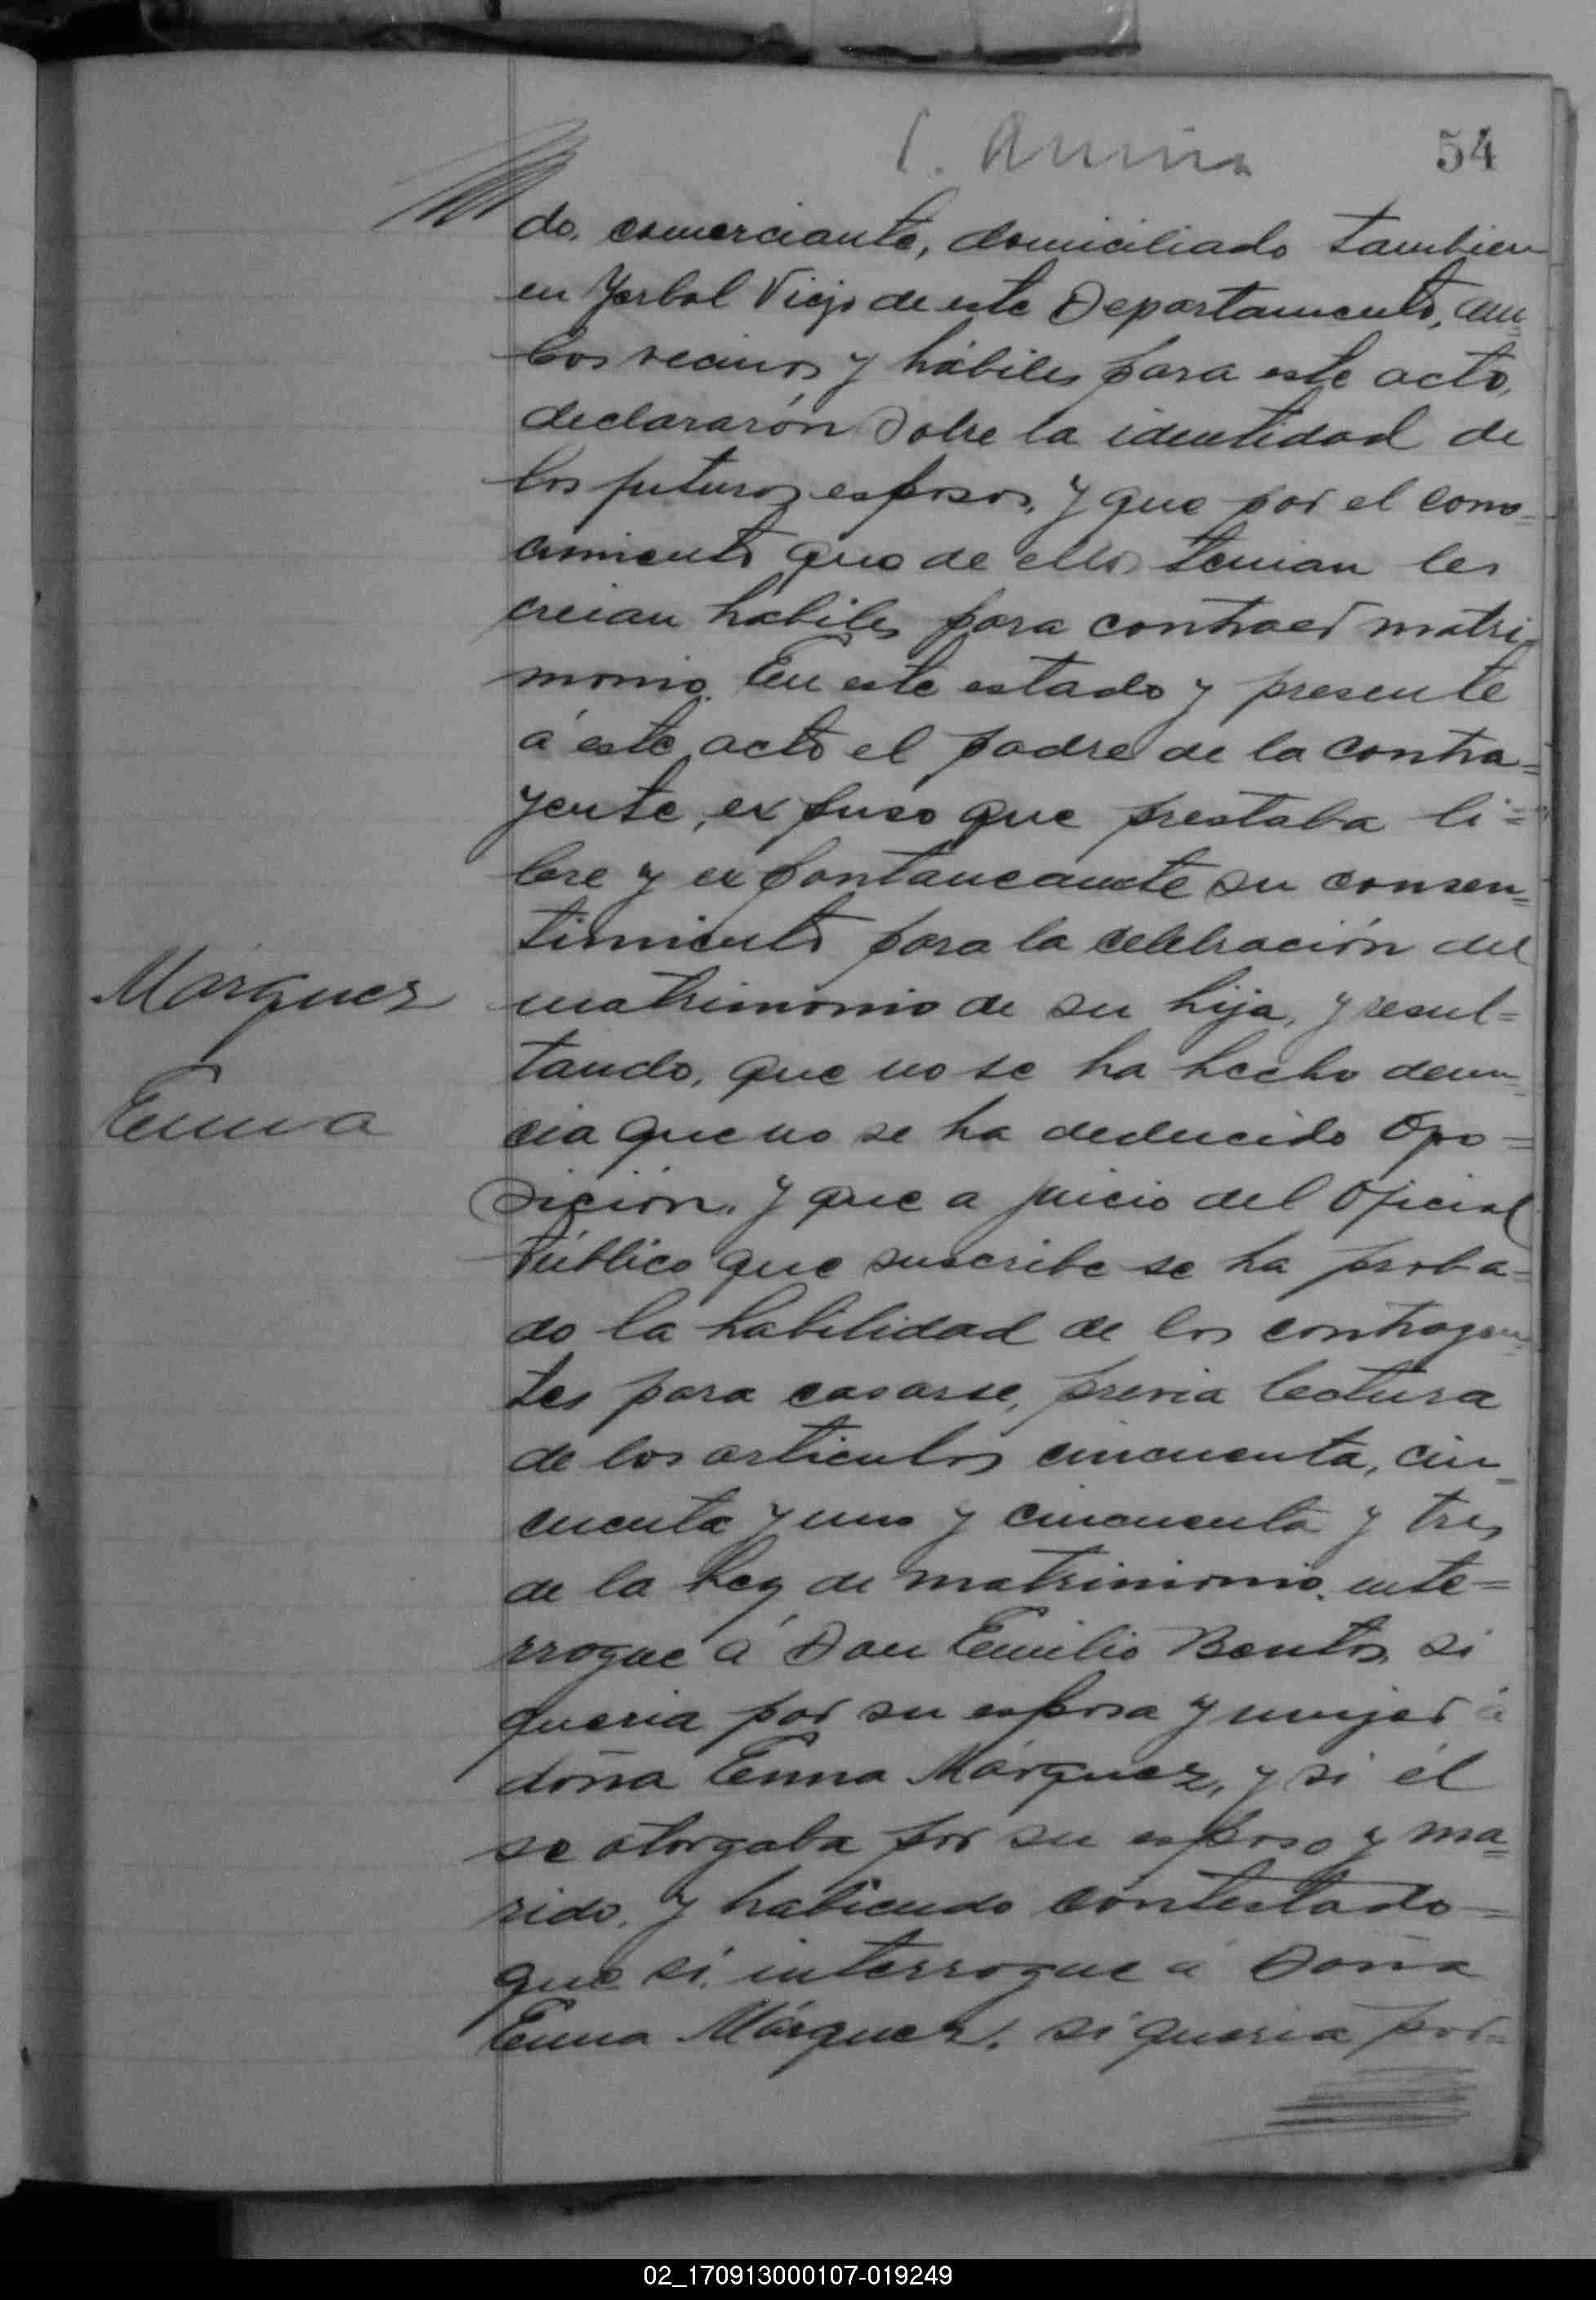 54
do, comerciante, domiciliado tambien
en Yerbal Viejo de este Departamento, am
bos vecinos y hábiles para este acto,
declararón Sobre la identidad de
los futuros esposos, y que por el cono-
cimiento que de ellos tenian les
creian habiles para contraer matri-
monio. En este estado y presente
á este acto el padre de la contra=
yente, expuso que prestaba li=
bre y expontaneamete su consen=
timiento para la celebración del
Márquez
matrimonio de su hija, y resul=
tando, que no se ha hecho denun
Emma
cia que no se ha deducido Opo=
sición, y que a juicio del Oficial
Público que suscribe se ha proba=
do la habilidad de los contrayen
tes para casarse, previa lectura
de los articulos cincuenta, cin-
cuenta y uno y cincuenta y tres
de la Ley de matrimonio, inte=
rrogue á Don Emilio Bentos, si
queria por su esposa y mujer á
doña Emma Márquez, y si él
se otorgaba por su esposo y ma=
rido, y habiendo contestado=
que sí, interrogue á Doña
Emma Márquez, si queria por=
02_170913000107-019249